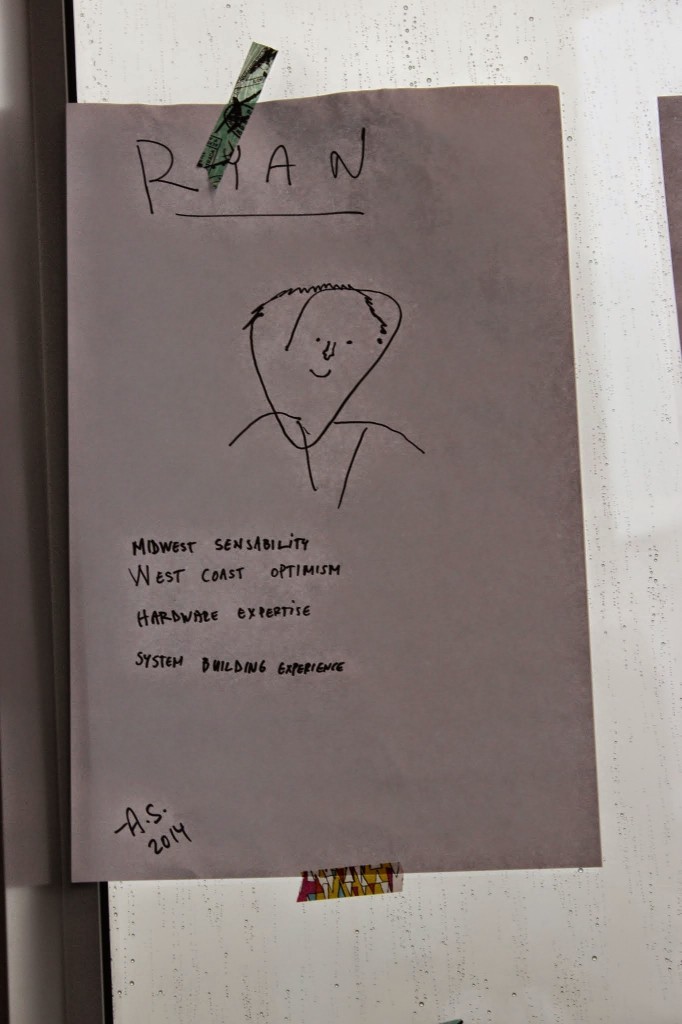 RYAN
MIDWEST SENSABILITY
WEST COAST OPTIMISM
HARDWARE EXPERTISE
SYSTEM BUILDING EXPERIENCE
A.S.
2014